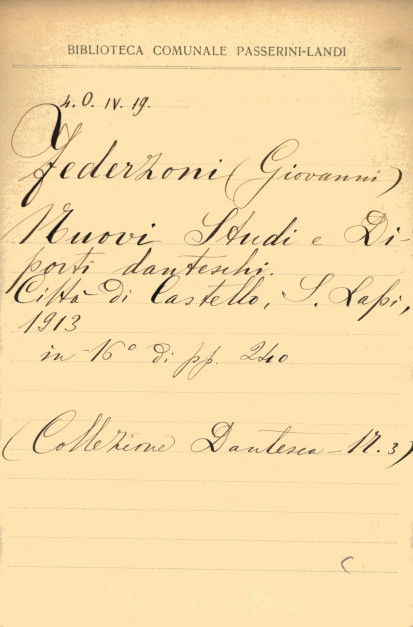 BIBLIOTECA COMUNALE PASSERINI-LANDI
4. O. IV. 19.
Federzoni (Giovanni)
Nuovi Studi e Di-
porti danteschi.
Città di Castello, S. Lapi,
1913
in 16° di pp. 240
(Collezione Dantesca - N. 3)
C